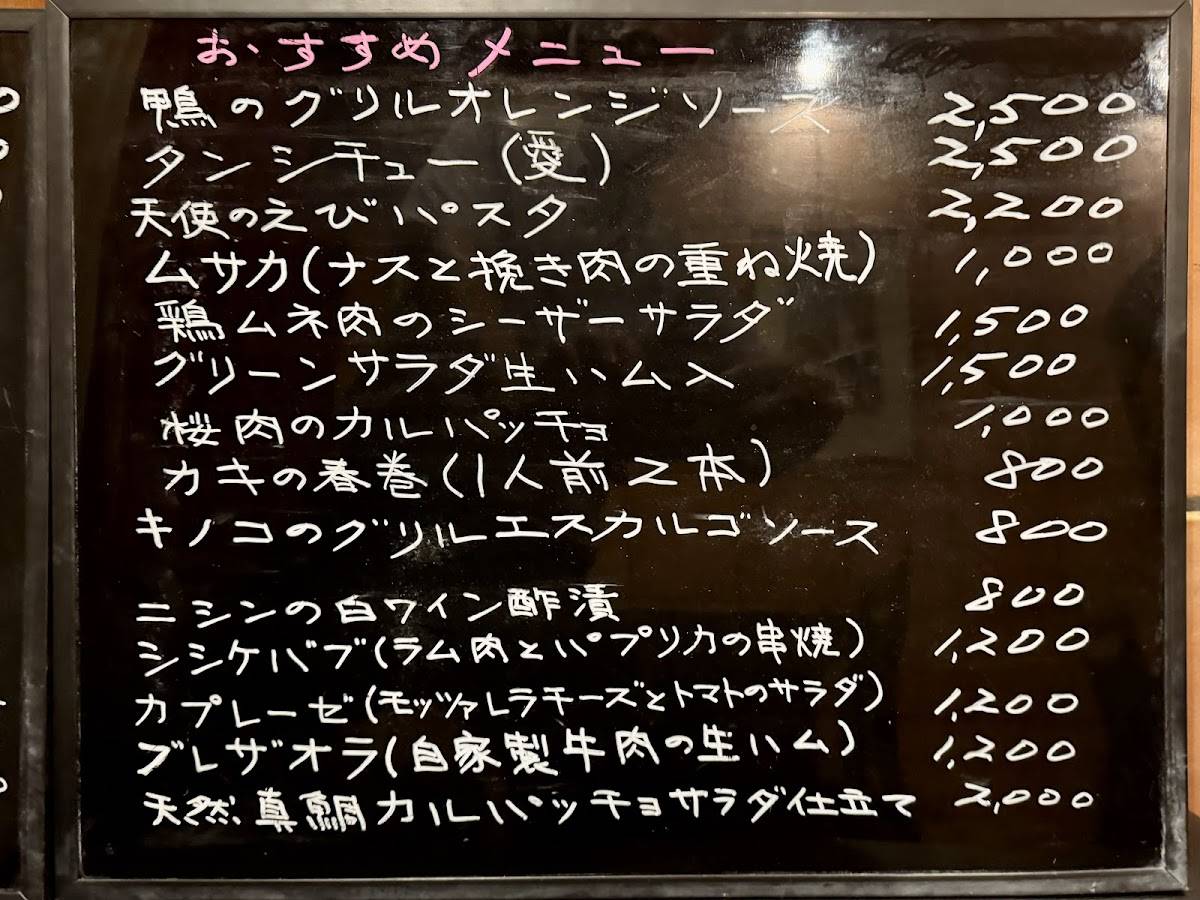 おすすめメニュー
鴨のグリルオレンジソース 2,500
タンシチュー(愛) 2,500
天使のえびパスタ 2,200
ムサカ(ナスと挽き肉の重ね焼) 1,000
鶏ムネ肉のシーザーサラダ 1,500
グリーンサラダ生ハム入 1,500
桜肉のカルパッチョ 1,000
カキの春巻(1人前2本) 800
キノコのグリルエスカルゴソース 800
ニシンの白ワイン酢漬 800
シシケバブ(ラム肉とパプリカの串焼) 1,200
カプレーゼ(モッツァレラチーズとトマトのサラダ) 1,200
ブレザオラ(自家製牛肉の生ハム) 1,200
天然真鯛カルパッチョサラダ仕立て 2,000